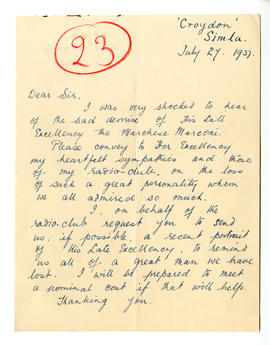 'Croydon'
Simla.
July 27. 1937.
23
Dear Sir,
I was very shocked to hear
of the sad demise of His Late
Excellency the Marchese Marconi.
Please convey to Her Excellency
my heartfelt sympathies and those
of my radio-club, on the loss
of such a great personality whom
we all admired so much.
I, on behalf of the
radio-club request you to send
us, if possible a recent portrait
of His Late Excellency, to remind
us all of a great man we have
lost. I will be prepared to meet
a nominal cost if that will help.
Thanking you.